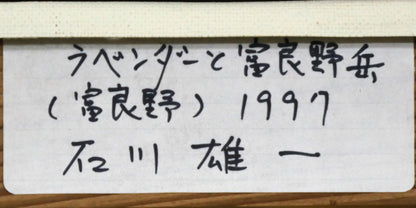 ラベンダーと富良野岳
(富良野) 1997
石川 雄一